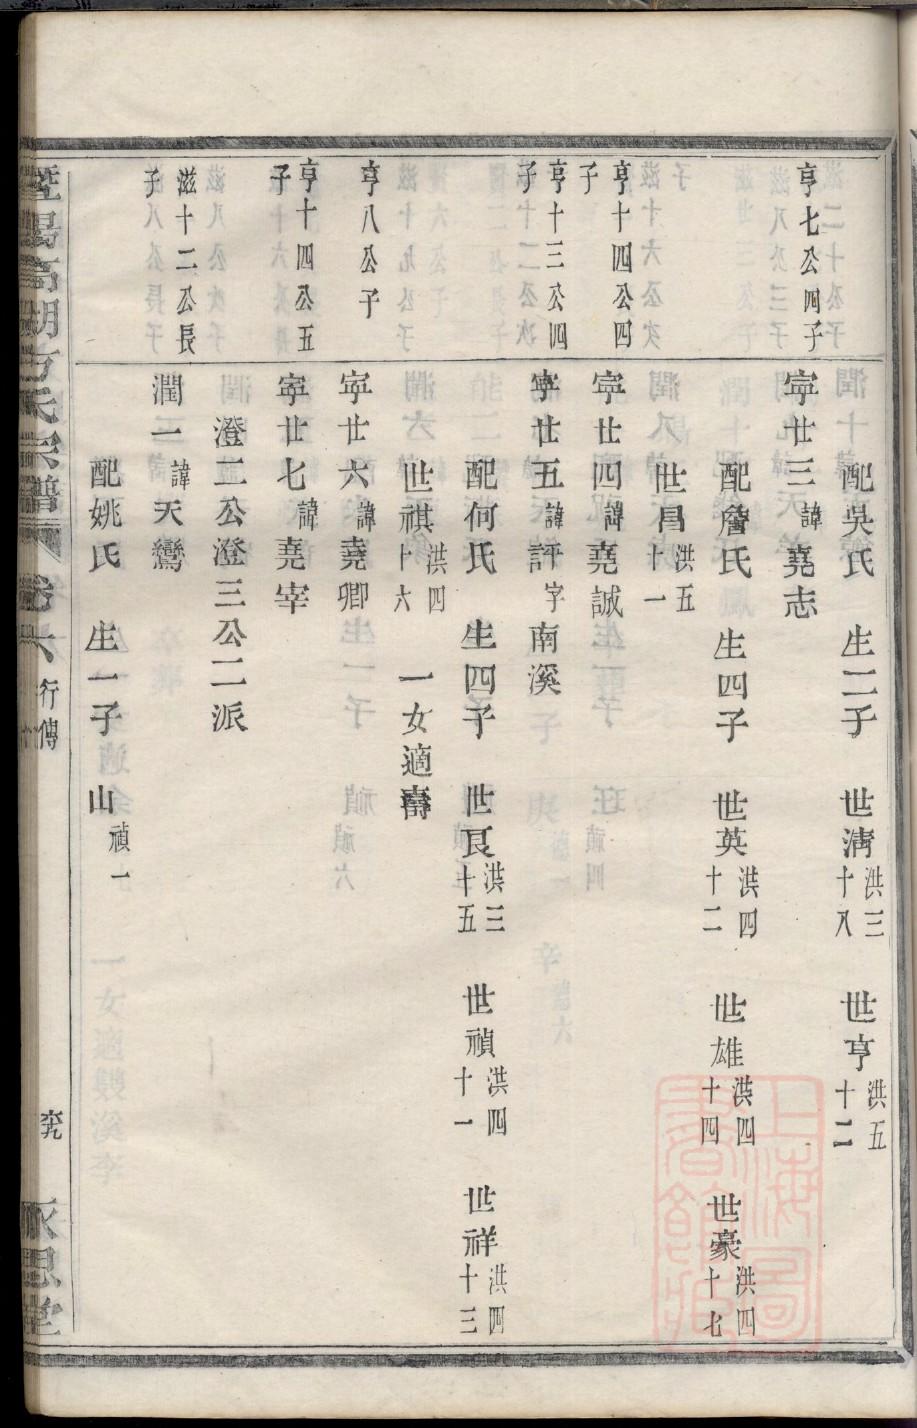 配吳氏 生二子 世淸洪三十八 世亨洪五十二
亨七公四子 寜廿三諱堯志
配詹氏 生四子 世英洪四十二 世雄洪四十四 世豪洪四十七
世昌洪五十一
亨十四公四子 寜廿四諱堯誠
亨十三公四子 寜廿五諱評字南溪
配何氏 生四子 世良洪三十五 世禎洪四十一 世祥洪四十三
世祺洪四十六 一女適壽
亨八公子 寜廿六諱堯卿
亨十四公五子 寜廿七諱堯宰
澄二公澄三公二派
滋十二公長子 潤一諱天鸞
配姚氏 生一子 山禎一
暨陽高湖方氏宗譜 卷六 行傳 永思堂
上海圖書館藏